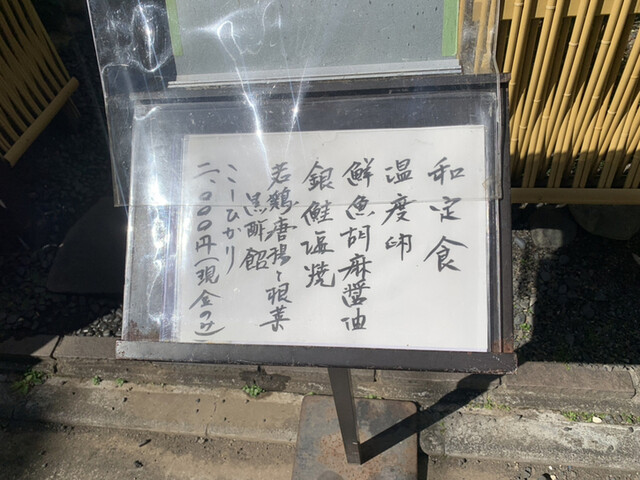 和定食
温度卵
鮮魚胡麻醤油
銀鮭塩焼
若鶏唐揚と根菜
黒酢餡
こしひかり
二、〇〇〇円(現金のみ)